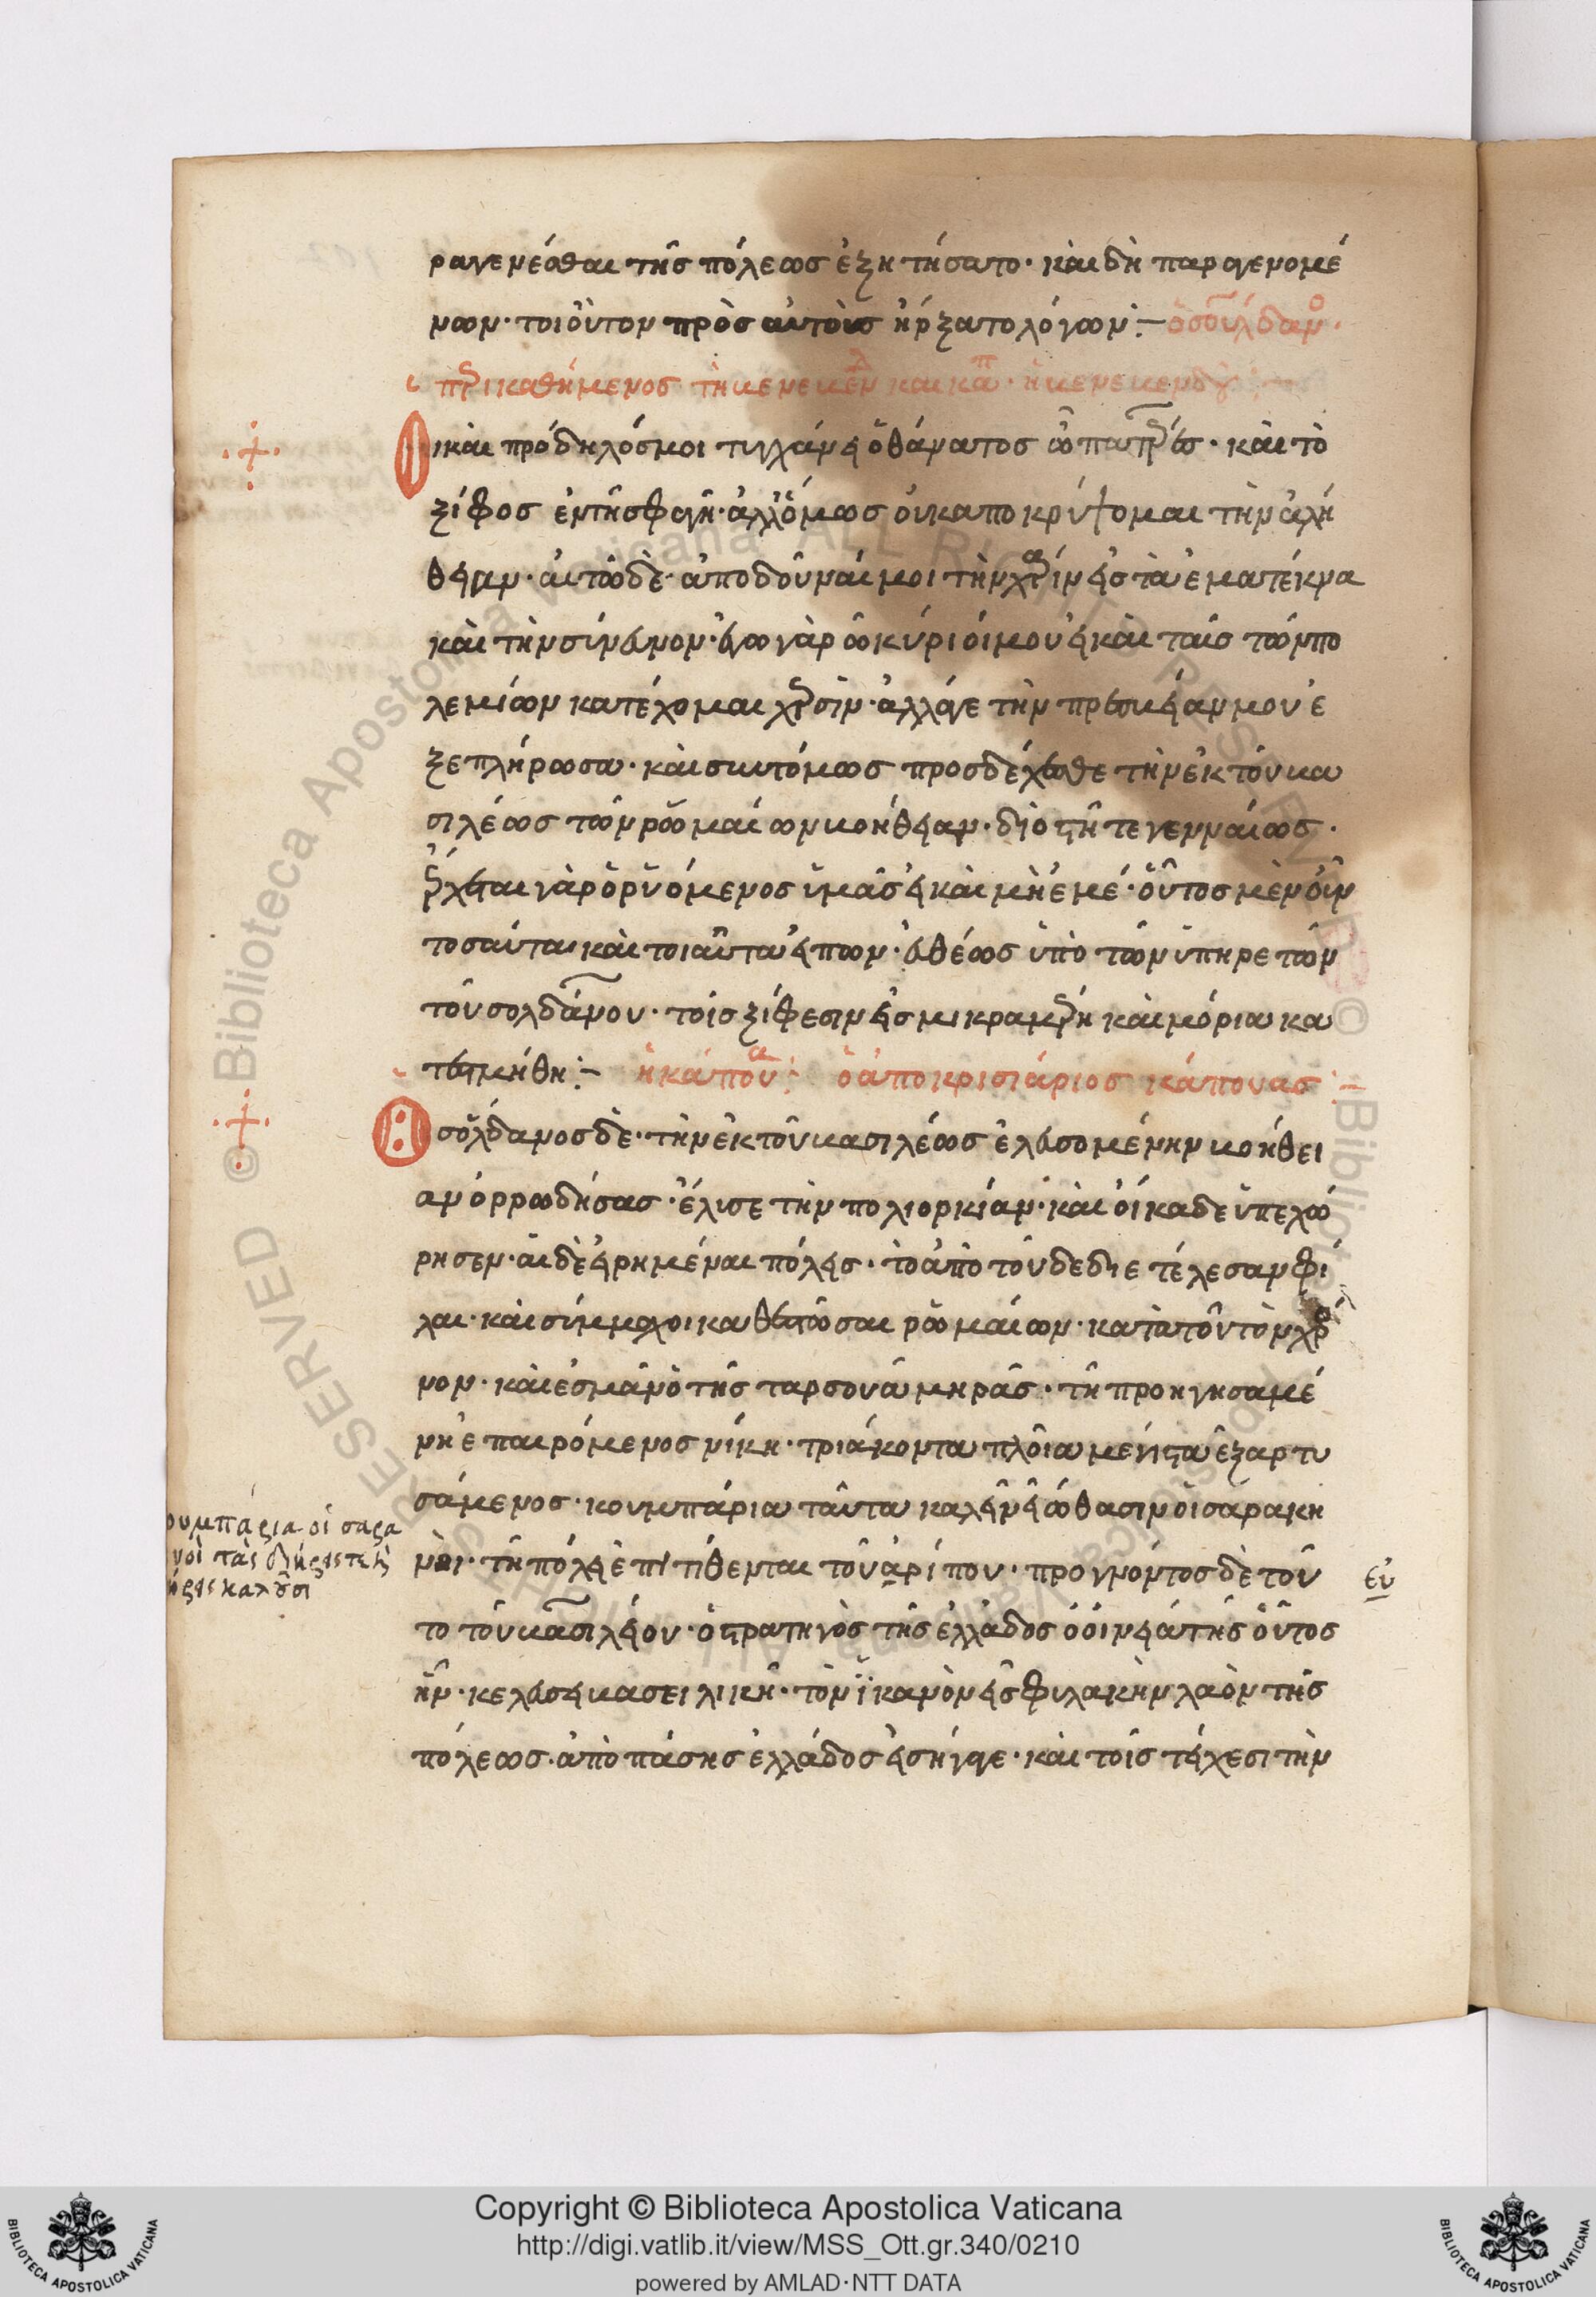 ραγενέσθαι τῆς πόλεως ἐξητήσατο· καὶ δὴ παραγενομέ
νων· τοιούτον πρὸς αὐτοὺς ἤρξατο λόγων :– ὁ σουλδαν
περικαθήμενος τὴν βενεβεν
ι καὶ πρόδηλός μοι τυγχάνει ὁ θάνατος ὦ πατέρες· καὶ τὸ
ξίφος ἐν τῆ σφαγῆ· ἀλλ' ὅμως οὐκ αποκρύψομαι τὴν ἀλή
θειαν· αἰτῶ δὲ ἀποδοῦναί μοι τὴν χάριν εἰς τὰ ἐμα τέκνα
καὶ τὴν σύνευνον· ἐγω γὰρ ὦ κύριοί μου εἰ καὶ ταῖς τῶν πο
λεμίων κατέχομαι χερσὶν· ἀλλάγε τὴν πρεσβείαν μου ἐ
ξεπλήρωσα· καὶ συντόμως προσδέχεσθε τὴν ἐκ τοῦ βα
σιλέως τῶν ρωμαίων βοήθειαν· διο στῆτε γενναίως·
ἔρχεται γὰρ ὁ ρυόμενος ὑμᾶς εἰ καὶ μὴ ἐμέ· οὗτος μὲν οὖν
τοσαύτα καὶ τοιαῦτα εἰπων· εὐθέως ὑπὸ τῶν ὑπηρετῶν
τοῦ σολδάνου· τοῖς ξίφεσιν εἰς μικρα μέρη καὶ μόρια κα
τετμήθη :– ὁ ἀποκρισιάριος
Ὁ σολδανος δὲ· τὴν ἐκ τοῦ βασιλέως ἐλευσομένην βοήθει
αν ὀρρωδήσας· ἔλυσε τὴν πολιορκίαν· καὶ οἴκαδε ὑπεχώ
ρησεν· αἱ δὲ εἰρημέναι πόλεις· τὸ ἀπὸ τοῦδε διετέλεσαν φί
λαι· καὶ σύμμαχοι καθεστῶσαι ρωμαίων· κατα τοῦτὸν χρό
νον· καὶ ἐσμᾶν ὁ τῆς ταρσοῦ ἀμηρᾶς· τῆ προηγησαμέ
νη ἐπαιρόμενος νίκη· τριάκοντα πλοῖα μέγιστα ἐξαρτυ
σάμενος· κουμπάρια ταῦτα καλεῖν εἰώθασιν οἱ σαρακη
νοὶ· τῆ πόλει ἐπιτίθενται τοῦ ἀρίπου· προγνόντος δὲ τοῦ
το τοῦ βασιλείου· ὁ στρατηγὸς τῆς ἑλλάδος ὁ οἰνειάτης οὗτος
ἦν· κελεύσει βασειλικῆ· τὸν ἱκανὸν εἰς φυλακὴν λαὸν τῆς
πόλεως· ἀπὸ πάσης ἑλλάδος εἰσήγαγε· καὶ τοῖς τείχεσι τὴν
ουμπάρια οἱ σαρα
νοὶ τὰς
καλοῦσι
εὐ
Copyright © Biblioteca Apostolica Vaticana
http://digi.vatlib.it/view/MSS_Ott.gr.340/0210
powered by AMLAD·NTT DATA